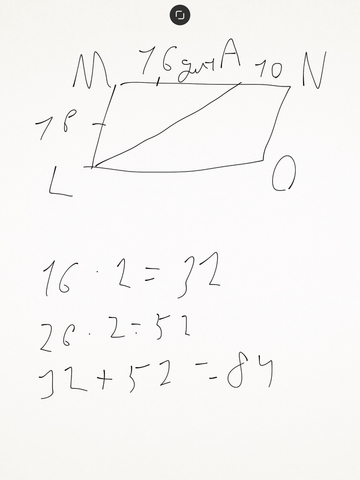 M 16 дм A 10 N
L O
16 · 2 = 32
26 · 2 = 52
32 + 52 = 84